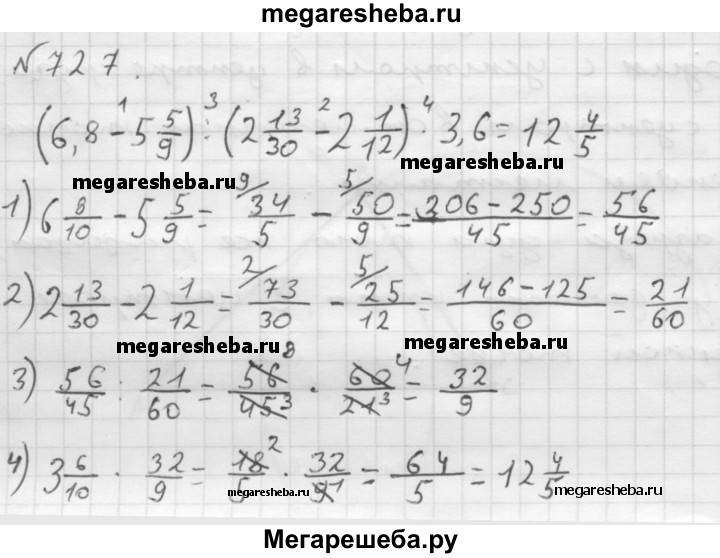 megaresheba.ru
№727.
(6,8 - 5 5/9) : (2 13/30 - 2 1/12) · 3,6 = 12 4/5
1 3 2 4
megaresheba.ru
megaresheba.ru
1) 6 8/10 - 5 5/9 = 9/ 34/5 - 5/ 50/9 = 306 - 250/45 = 56/45
2) 2 13/30 - 2 1/12 = 2/ 73/30 - 5/ 25/12 = 146 - 125/60 = 21/60
megaresheba.ru
megaresheba.ru
3) 56/45 : 21/60 = 56 8/45 3 · 60 4/21 3 = 32/9
4) 3 6/10 · 32/9 = 18 2/5 · 32/9 1 = 64/5 = 12 4/5
megaresheba.ru
megaresheba.ru
Мегарешеба.ру